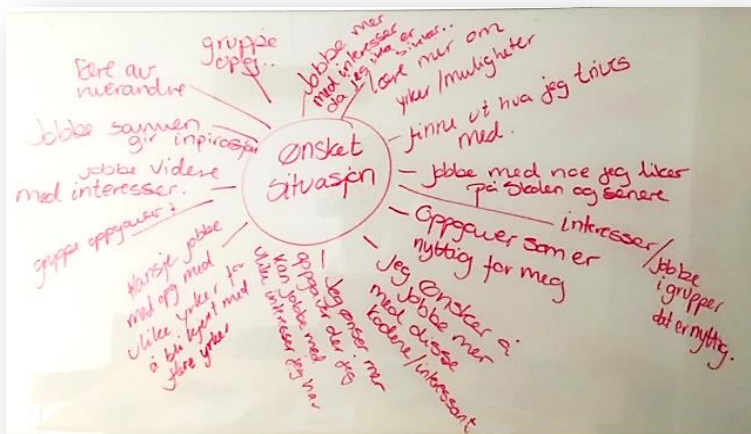 Ønsket
situasjon
gruppe
opg..
Jobbe mer
med interesser
da jeg
lære mer om
yrker/muligheter
finne ut hva jeg trives
med.
jobbe med noe jeg liker
på skolen og senere
interesser/
jobbe
i grupper
det er nyttig.
Oppgaver som er
nyttig for meg
Jeg Ønsker å
jobbe mer
med disse
kodene/interessant
Jeg ønser mer
oppgaver der jeg
kan jobbe med
ulike interesser jeg har
Kansje jobbe
med opg med
ulike yrker for
å bli kjent med
flere yrker
gruppe oppgaver
jobbe videre
med interesser.
Jobbe sammen
gir inpirasjon
lære av
hverandre